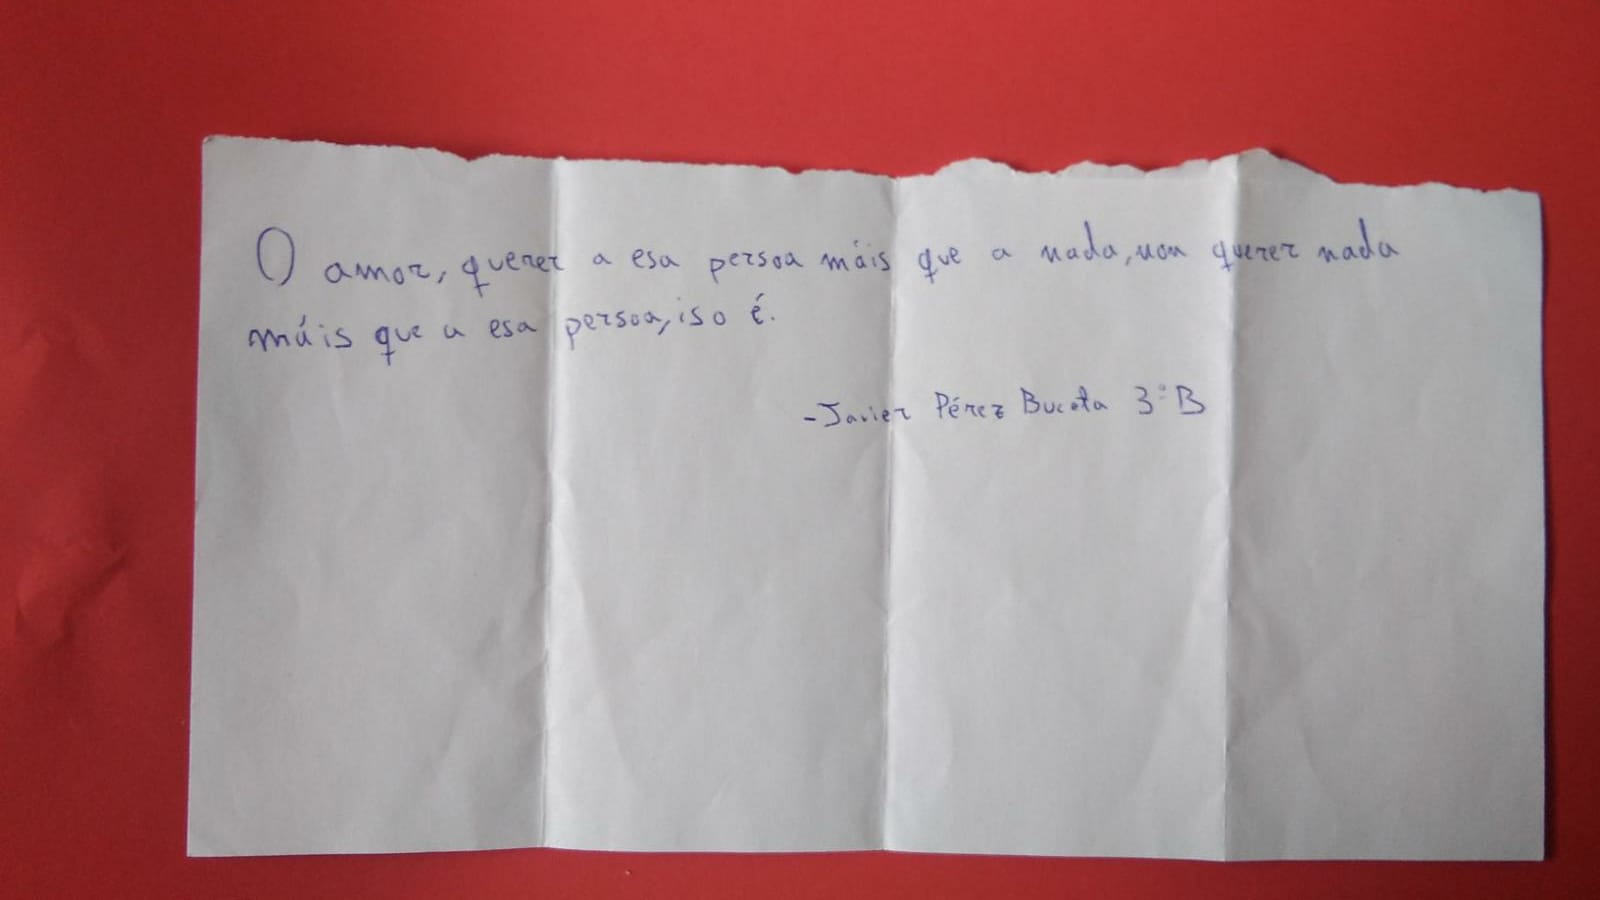 O amor, querer a esa persoa máis que a nada, non querer nada
máis que a esa persoa, iso é.
-Javier Pérez Buceta 3ºB